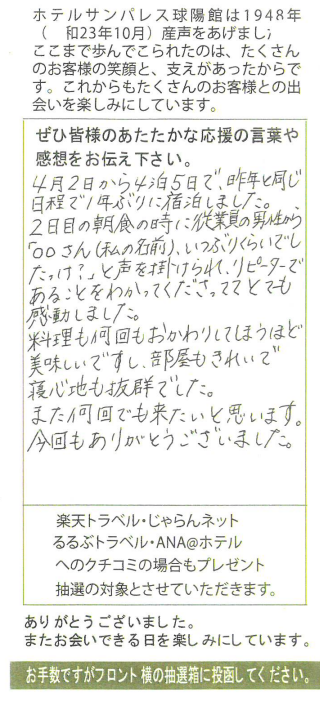 ホテルサンパレス球陽館は1948年
(　和23年10月）産声をあげまし
ここまで歩んでこられたのは、たくさん
のお客様の笑顔と、支えがあったからで
す。これからもたくさんのお客様との出
会いを楽しみにしています。
ぜひ皆様のあたたかな応援の言葉や
感想をお伝え下さい。
4月2日から4泊5日で、昨年と同じ
日程で1年ぶりに宿泊しました。
2日目の朝食の時に従業員の男性から
「○○さん(私の名前)、いつぶりぐらいでし
たっけ?」と声を掛けられ、リピーターで
あることをわかってくださっててとても
感動しました。
料理も何回もおかわりしてしまうほど
美味しいですし、部屋もきれいで
寝心地も抜群でした。
また何回でも来たいと思います。
今回もありがとうございました。
楽天トラベル・じゃらんネット
るるぶトラベル・ANA@ホテル
へのクチコミの場合もプレゼント
抽選の対象とさせていただきます。
ありがとうございました。
またお会いできる日を楽しみにしています。
お手数ですがフロント横の抽選箱に投函してください。